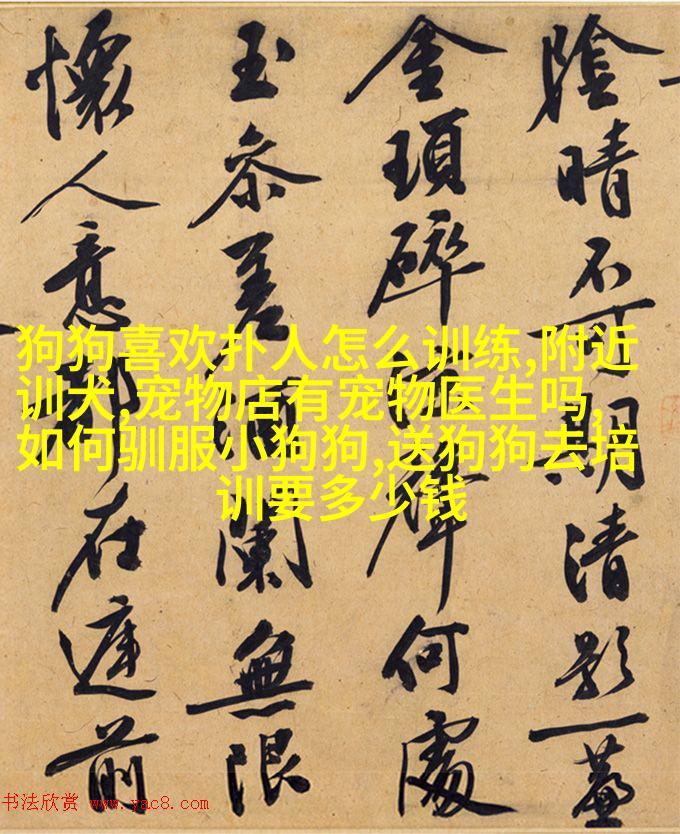 陰晴不可期清影一
金瑣碎何處
玉參差闌無限
懷人意在前
狗狗喜欢扑人怎么训练,附近
训犬,宠物店有宠物医生吗,
如何驯服小狗狗,送狗狗去培
训要多少钱
书法欣赏 www.yac8.com